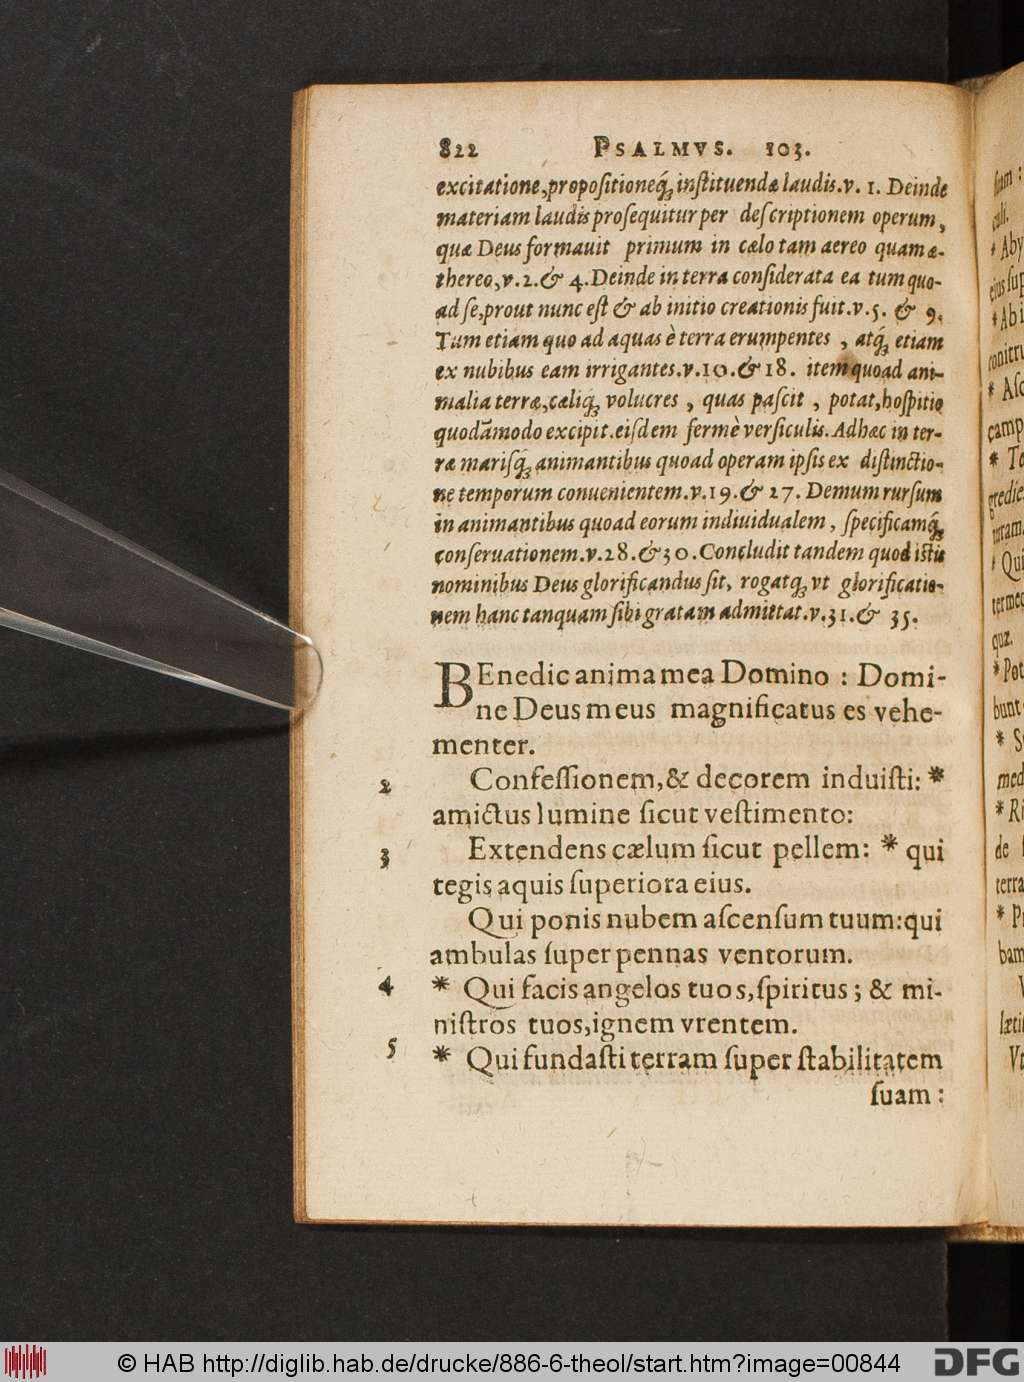 822 PSALMVS. 103.
excitatione,propoſitioneq́; inſtituendæ laudis.v. 1. Deinde
materiam laudis proſequitur per deſcriptionem operum,
quæ Deus formauit primum in cælo tam aereo quam æ-
thereo,v.2.& 4.Deinde in terra conſiderata ea tum quo-
ad ſe,prout nunc eſt & ab initio creationis fuit.v.5. & 9.
Tum etiam quo ad aquas è terra erumpentes , atq́; etiam
ex nubibus eam irrigantes.v.10.& 18. item quoad ani-
malia terræ,cæliq́; volucres , quas paſcit , potat,hoſpitio
quodāmodo excipit.eiſdem fermè verſiculis.Adhæc in ter-
ræ mariſq́; animantibus quoad operam ipſis ex diſtinctio-
ne temporum conuenientem.v.19.& 27. Demum rurſum
in animantibus quoad eorum indiuidualem, ſpecificamq́;
conſeruationem.v.28.&30.Concludit tandem quod iſtis
nominibus Deus glorificandus ſit, rogatq; vt glorificatio-
nem hanc tanquam ſibi gratam admittat.v.31.& 35.
BEnedic anima mea Domino : Domi-
ne Deus meus magnificatus es vehe-
menter.
2 Confeſſionem,& decorem induiſti: *
amictus lumine ſicut veſtimento:
3 Extendens cælum ſicut pellem: * qui
tegis aquis ſuperiora eius.
Qui ponis nubem aſcenſum tuum:qui
ambulas ſuper pennas ventorum.
4 * Qui facis angelos tuos,ſpiritus ; & mi-
niſtros tuos,ignem vrentem.
5 * Qui fundaſti terram ſuper ſtabilitatem
ſuam :
© HAB http://diglib.hab.de/drucke/886-6-theol/start.htm?image=00844 DFG